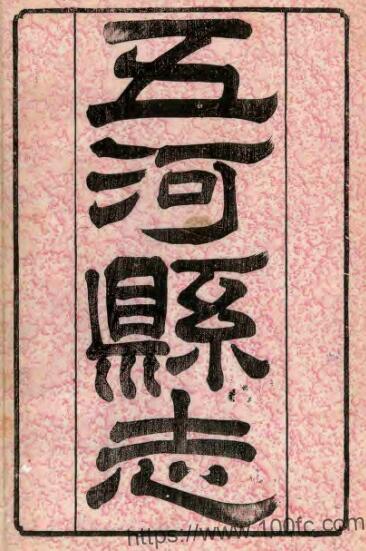 五河縣志
https://www.100fc.com